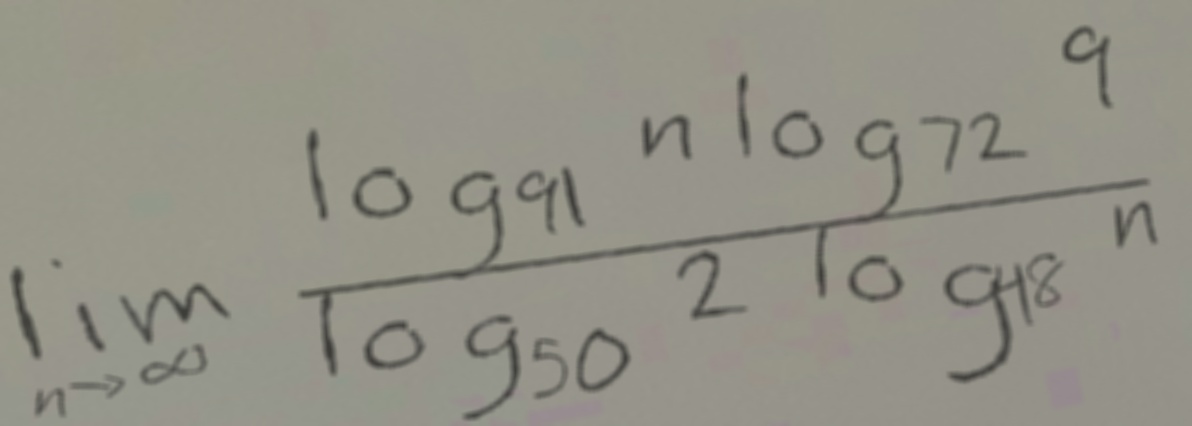 \lim_{n \to \infty} \frac{\log_{91} n \log_{72} 9}{\log_{50} 2 \log_{18} n}